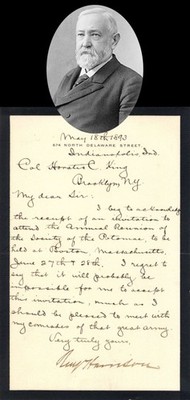 May 18th 1893
674 NORTH DELAWARE STREET
Indianapolis, Ind.
Col Horatio C. King
Brooklyn, N.Y.
My dear Sir:
I beg to acknowledge
the receipt of an invitation to
attend the Annual Reunion of
the Society of the Potomac, to be
held at Boston, Massachusetts,
June 27th & 28th. I regret to
say that it will probably be
impossible for me to accept
this invitation, much as I
should be pleased to meet with
my comrades of that great army.
Very truly yours,
Benj Harrison